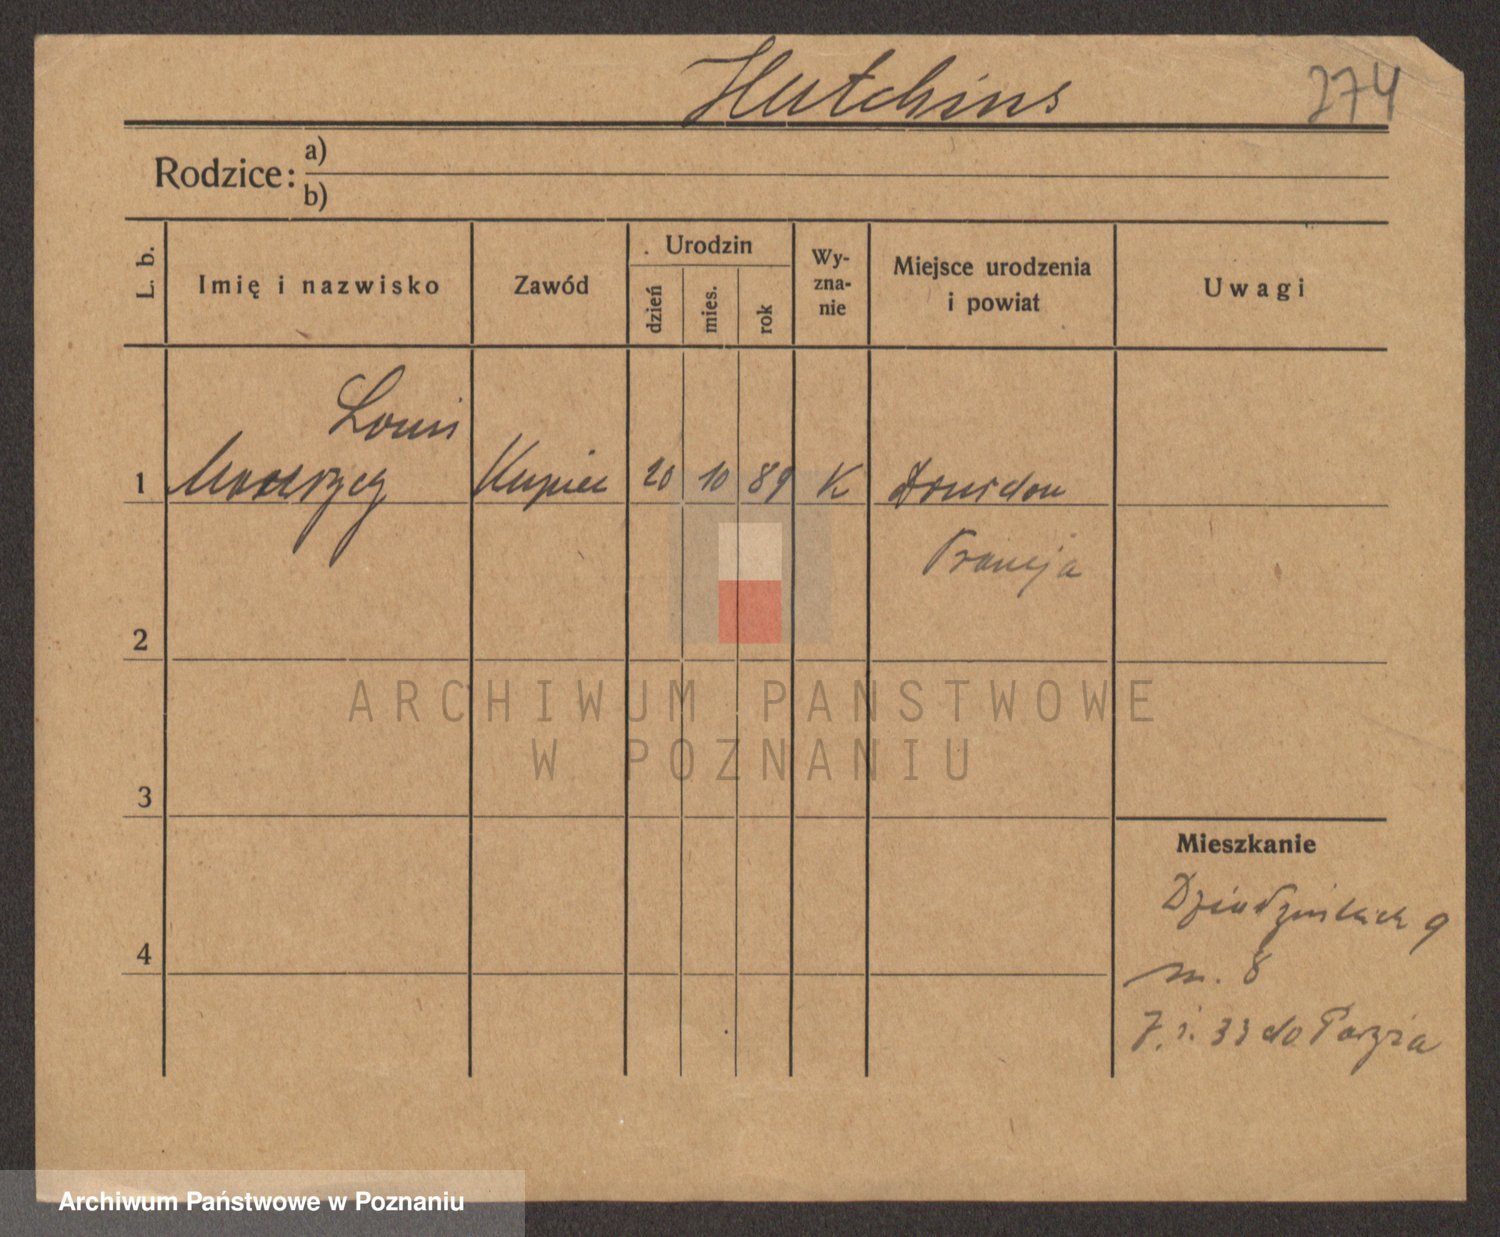 Hutchins
274
Rodzice: a)
b)
L. b.
Imię i nazwisko
Zawód
Urodzin
dzień
mies.
rok
Wy-
zna-
nie
Miejsce urodzenia
i powiat
Uwagi
Louis
1 Kupiec 20 10 89 K Dourdon
Francja
2
3
4
Mieszkanie
9
m. 8
7. 1. 33 do
ARCHIWUM PANSTWOWE
W POZNANIU
Archiwum Państwowe w Poznaniu